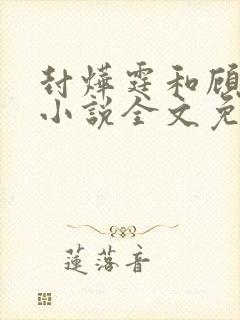 封烨霆和顾
小说全文免
莲落音